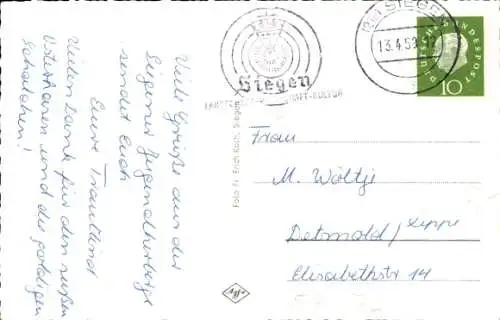 Viele Grüße aus der
Siegener Jugendherberge
sendet Euch
Eure Trautlind
Vielen Dank für den süßen
Osterhasen und die goldigen
Schälchen!
Foto Fr. Erich Koch, Siegen
SIEGEN
13.4.59
Siegen
KULTUR
DEUTSCHE BUNDESPOST
10
Frau
M. Wöltje
Detmold/Lippe
Elisabethstr 14